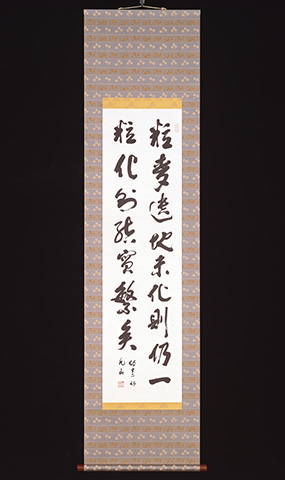 粒麥遺地未化則仍一
粒化則結實繁矣